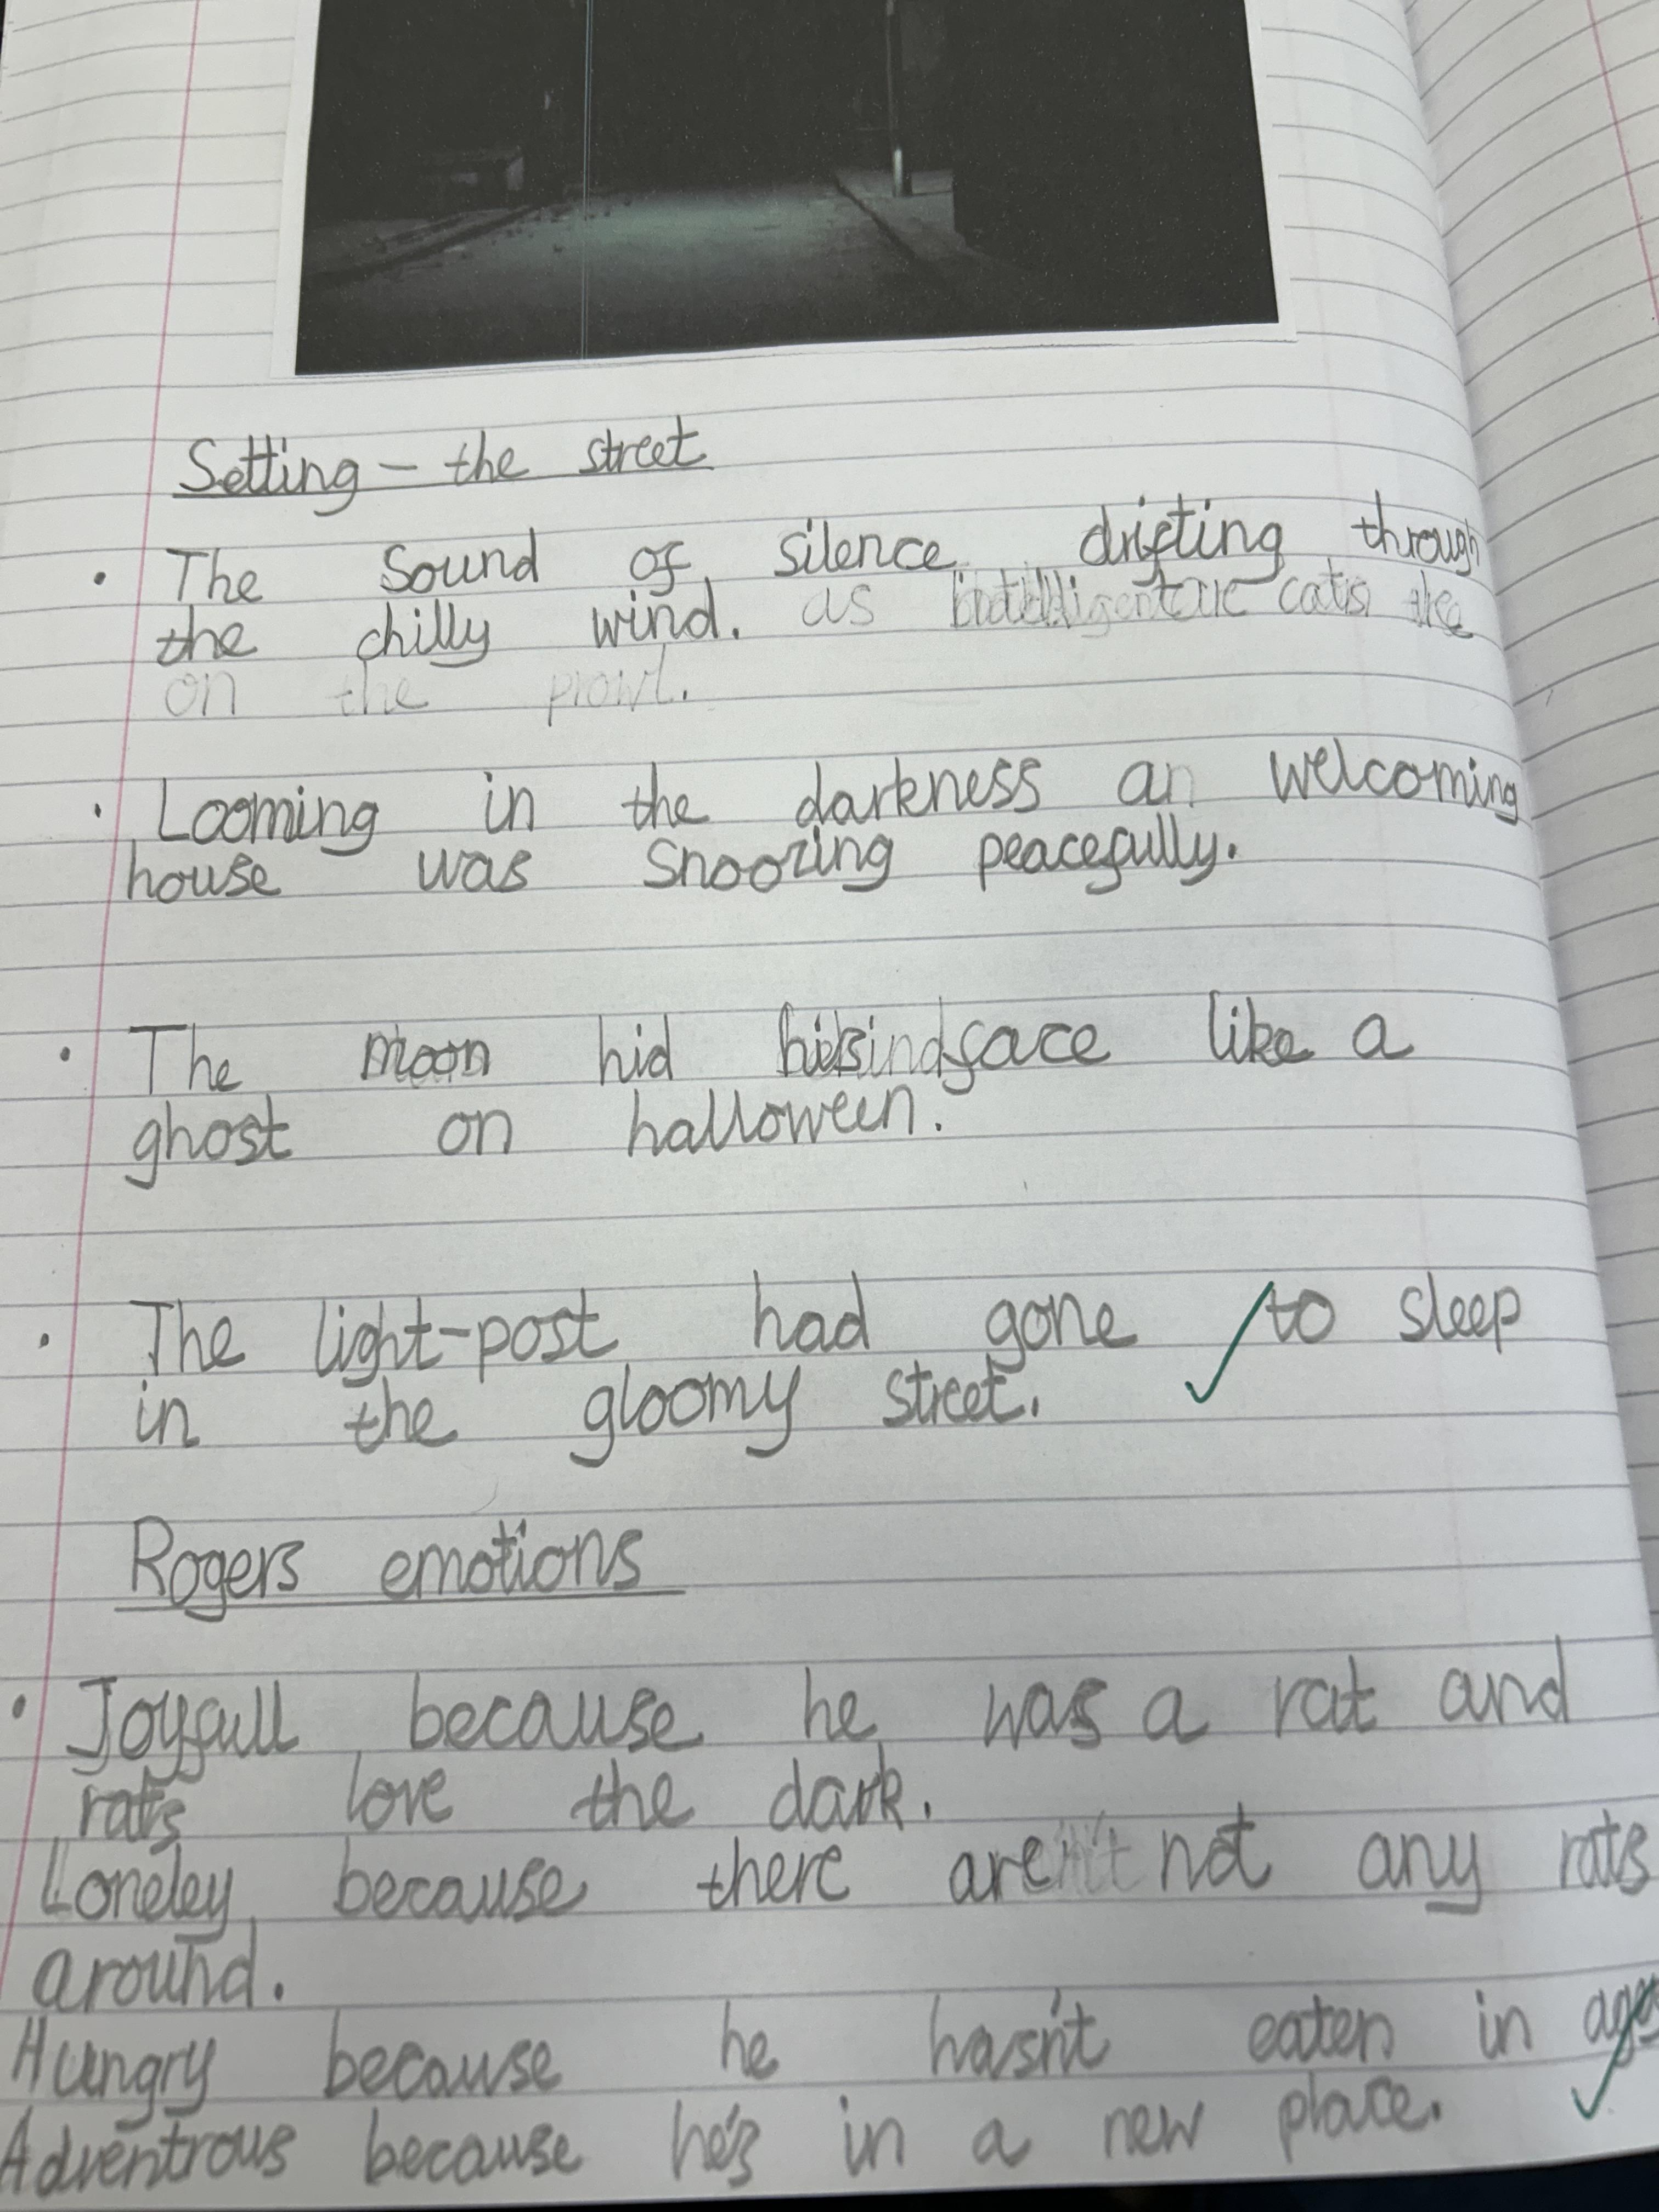 Setting - the street
• The sound of silence drifting through
the chilly wind. as cats
on the prowl.
• Looming in the darkness an welcoming
house was snoozing peacefully.
• The moon hid face like a
ghost on halloween.
• The light-post had gone to sleep
in the gloomy street.
Rogers emotions
• Joyfull because he was a rat and
rats love the dark.
Loneley because there are not any rats
around.
Hungry because he hasn't eaten in ages
Adventrous because he's in a new place.